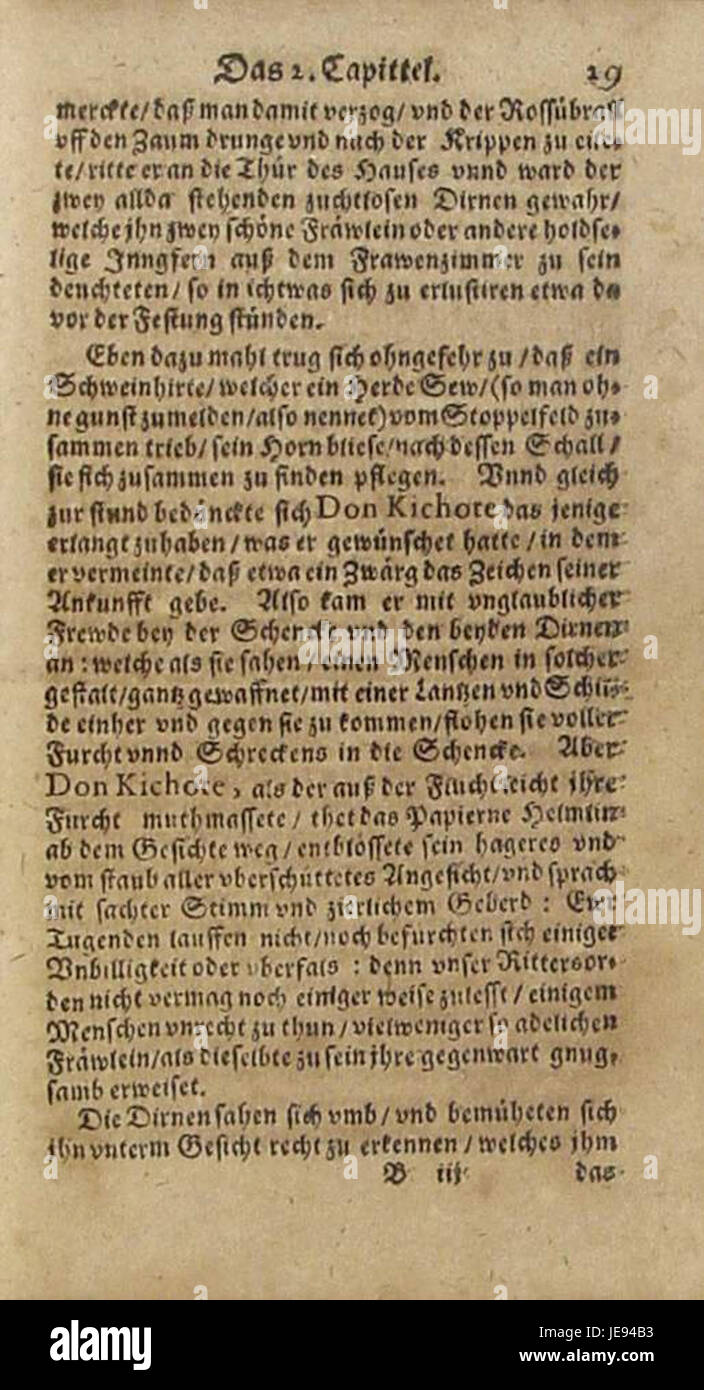 Das 2. Capittel. 29
merckte/ daß man damit verzog/ vnd der Rossübrall
vff den Zaum drunge vnd nach der Krippen zu eile-
te/ ritte er an die Thür des Hauses vnnd ward der
zwey allda stehenden zuchtlosen Dirnen gewahr/
welche jhn zwey schöne Fräwlein oder andere holdse-
lige Jnngfern auß dem Frawenzimmer zu sein
deuchteten/ so in ichtwas sich zu erlustiren etwa da
vor der Festung stünden.
Eben dazumahl trug sich ohngefehr zu/ daß ein
Schweinhirte/ welcher ein Herde Sew/ (so man oh-
ne gunst zumelden/ also nennet) vom Stoppelfeld zu-
sammen trieb/ sein Horn bliese/ nach dessen Schall/
sie sich zusammen zu finden pflegen. Vnnd gleich
zur stund bedünckte sich Don Kichote das jenige
erlangt zuhaben/ was er gewünschet hatte/ in dem
er vermeinte/ daß etwa ein Zwärg das Zeichen seiner
Ankunfft gebe. Also kam er mit vnglaublicher
Frewde bey der Schencke vnd den beyden Dirnen
an: welche als sie sahen/ einen Menschen in solcher
gestalt/ gantz gewaffnet/ mit einer Lantzen vnd Schil-
de einher vnd gegen sie zu kommen/ flohen sie voller
Furcht vnnd Schreckens in die Schencke. Aber
Don Kichote, als der auß der Flucht leicht jhre
Furcht muthmassete/ thet das Papierne Helmlin
ab dem Gesichte weg/ entblössete sein hageres vnd
vom staub aller vberschüttetes Angesicht/ vnd sprach
mit sachter Stimm vnd zierlichem Geberd: Ewr
Tugenden lauffen nicht/ noch befürchten sich einiger
Vnbilligkeit oder vberfals: denn vnser Rittersor-
den nicht vermag noch einiger weise zulesst/ einigem
Menschen vnrecht zu thun/ vielweniger so adelichen
Fräwlein/ als dieselbte zu sein jhre gegenwart gnug-
samb erweiset.
Die Dirnen sahen sich vmb/ vnd bemüheten sich
jhn vnterm Gesicht recht zu erkennen/ welches jhm
B iij das
alamy
Image ID: JE94B3
www.alamy.com